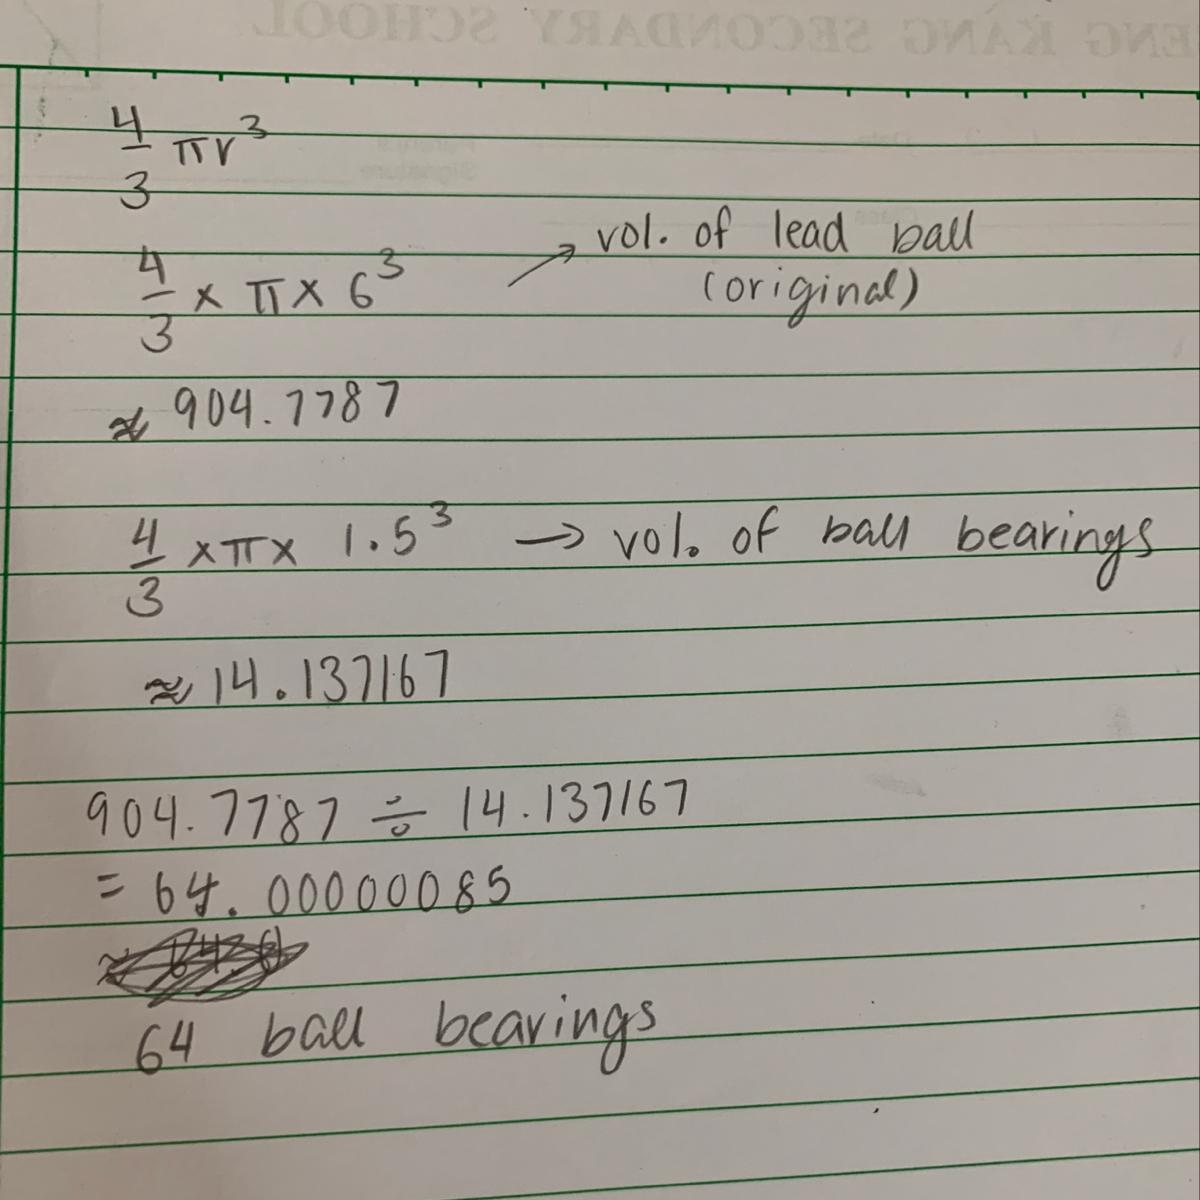 ENG KANG SECONDARY SCHOOL
4/3 πr³
4/3 × π × 6³ → vol. of lead ball
(original)
≈ 904.7787
4/3 × π × 1.5³ → vol. of ball bearings
≈ 14.137167
904.7787 ÷ 14.137167
= 64.00000085
64 ball bearings